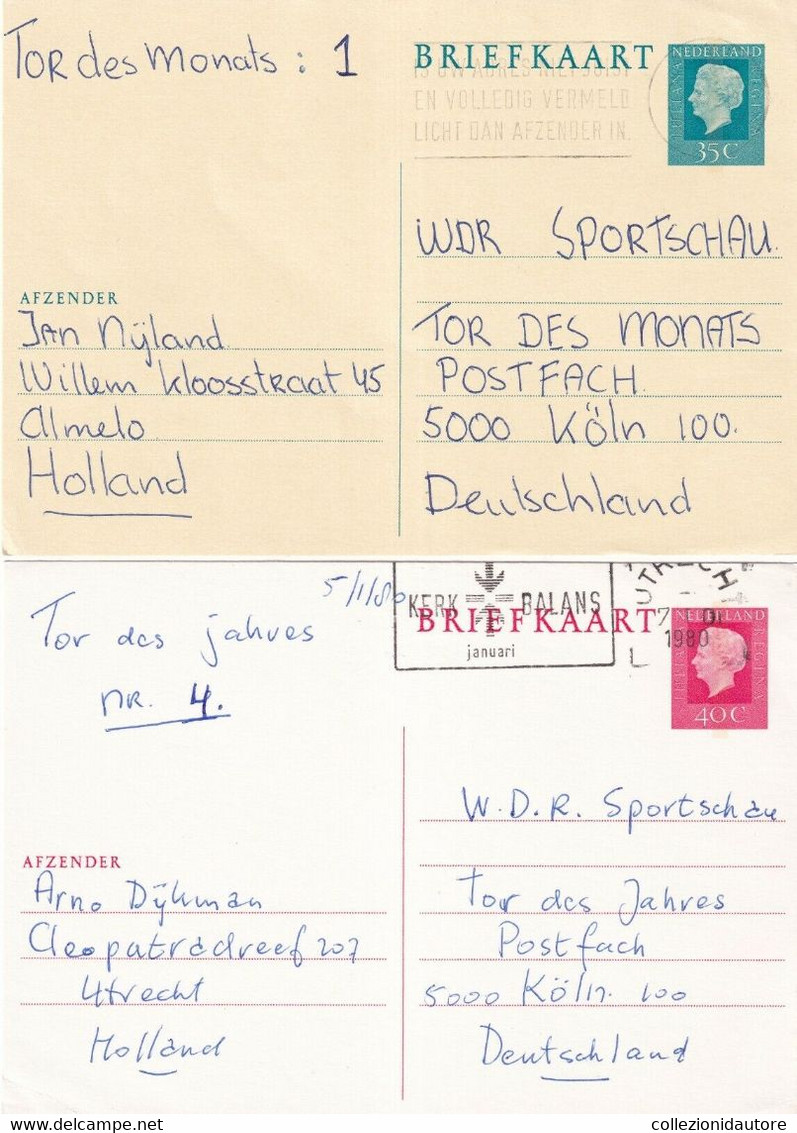 TOR des Monats : 1
BRIEFKAART
NEDERLAND
JULIANA REGINA
35 C
IS UW ADRES NIET JUIST
EN VOLLEDIG VERMELD
LICHT DAN AFZENDER IN.
WDR SPORTSCHAU.
TOR DES MONATS
POSTFACH.
5000 Köln 100.
Deutschland
AFZENDER
Jan Nijland
Willem Kloosstraat 45
Almelo
Holland
5/1/80
Tor des jahres
nr. 4.
KERK BALANS
januari
UTRECH
1980
BRIEFKAART
NEDERLAND
JULIANA REGINA
40 C
W.D.R. Sportschau
Tor des Jahres
Postfach
5000 Köln. 100
Deutschland
AFZENDER
Arno Dijkman
Cleopatradreef 207
Utrecht
Holland
collezionidautore